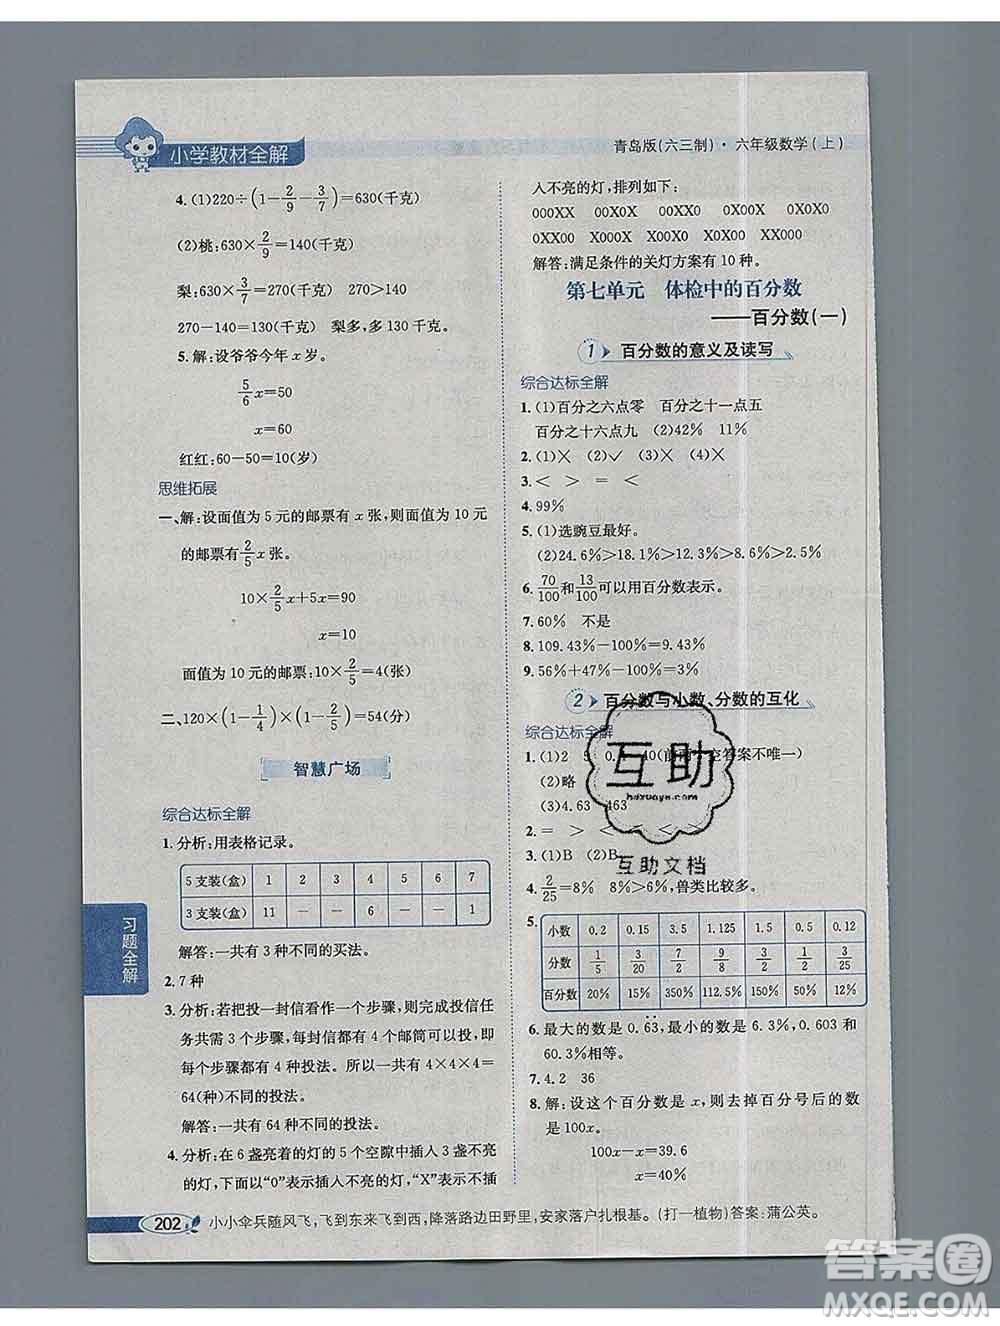 小学教材全解
青岛版(六三制)·六年级数学(上)
4.(1)220÷(1-2/9-3/7)=630(千克)
(2)桃:630×2/9=140(千克)
梨:630×3/7=270(千克) 270>140
270-140=130(千克) 梨多,多130千克。
5.解:设爷爷今年x岁。
5/6x=50
x=60
红红:60-50=10(岁)
思维拓展
一、解:设面值为5元的邮票有x张,则面值为10元
的邮票有2/5x张。
10×2/5x+5x=90
x=10
面值为10元的邮票:10×2/5=4(张)
二、120×(1-1/4)×(1-2/5)=54(分)
智慧广场
综合达标全解
1.分析:用表格记录。
5支装(盒) 1 2 3 4 5 6 7
3支装(盒) 11 - - 6 - - 1
解答:一共有3种不同的买法。
2.7种
3.分析:若把投一封信看作一个步骤,则完成投信任
务共需3个步骤,每封信都有4个邮筒可以投,即
每个步骤都有4种投法。所以一共有4×4×4=
64(种)不同的投法。
解答:一共有64种不同的投法。
4.分析:在6盏亮着的灯的5个空隙中插入3盏不亮
的灯,下面以"0"表示插人不亮的灯,"X"表示不插
习题全解
人不亮的灯,排列如下:
000XX 00X0X 00XX0 0X00X 0X0X0
0XX00 X000X X00X0 X0X00 XX000
解答:满足条件的关灯方案有10种。
第七单元 体检中的百分数
——百分数(一)
1 百分数的意义及读写
综合达标全解
1.(1)百分之六点零 百分之十一点五
百分之十六点九 (2)42% 11%
2.(1)× (2)✓ (3)× (4)×
3.< > = <
4.99%
5.(1)选豌豆最好。
(2)24.6%>18.1%>12.3%>8.6%>2.5%
6.70/100和13/100可以用百分数表示。
7.60% 不是
8.109.43%-100%=9.43%
9.56%+47%-100%=3%
2 百分数与小数、分数的互化
综合达标全解
1.(1)2 5 0.4 40(前两个空答案不唯一)
(2)略
(3)4.63 463
2.= > < =
3.(1)B (2)B
4.2/25=8% 8%>6%,兽类比较多。
5.
小数 0.2 0.15 3.5 1.125 1.5 0.5 0.12
分数 1/5 3/20 7/2 9/8 3/2 1/2 3/25
百分数 20% 15% 350% 112.5% 150% 50% 12%
6.最大的数是0.6̇3̇,最小的数是6.3%,0.603和
60.3%相等。
7.4.2 36
8.解:设这个百分数是x,则去掉百分号后的数
是100x。
100x-x=39.6
x=40%
互助
hdzuoye.com
互助文档
202 小小伞兵随风飞,飞到东来飞到西,降落路边田野里,安家落户扎根基。(打一植物)答案:蒲公英。
答案圈
MXQE.COM